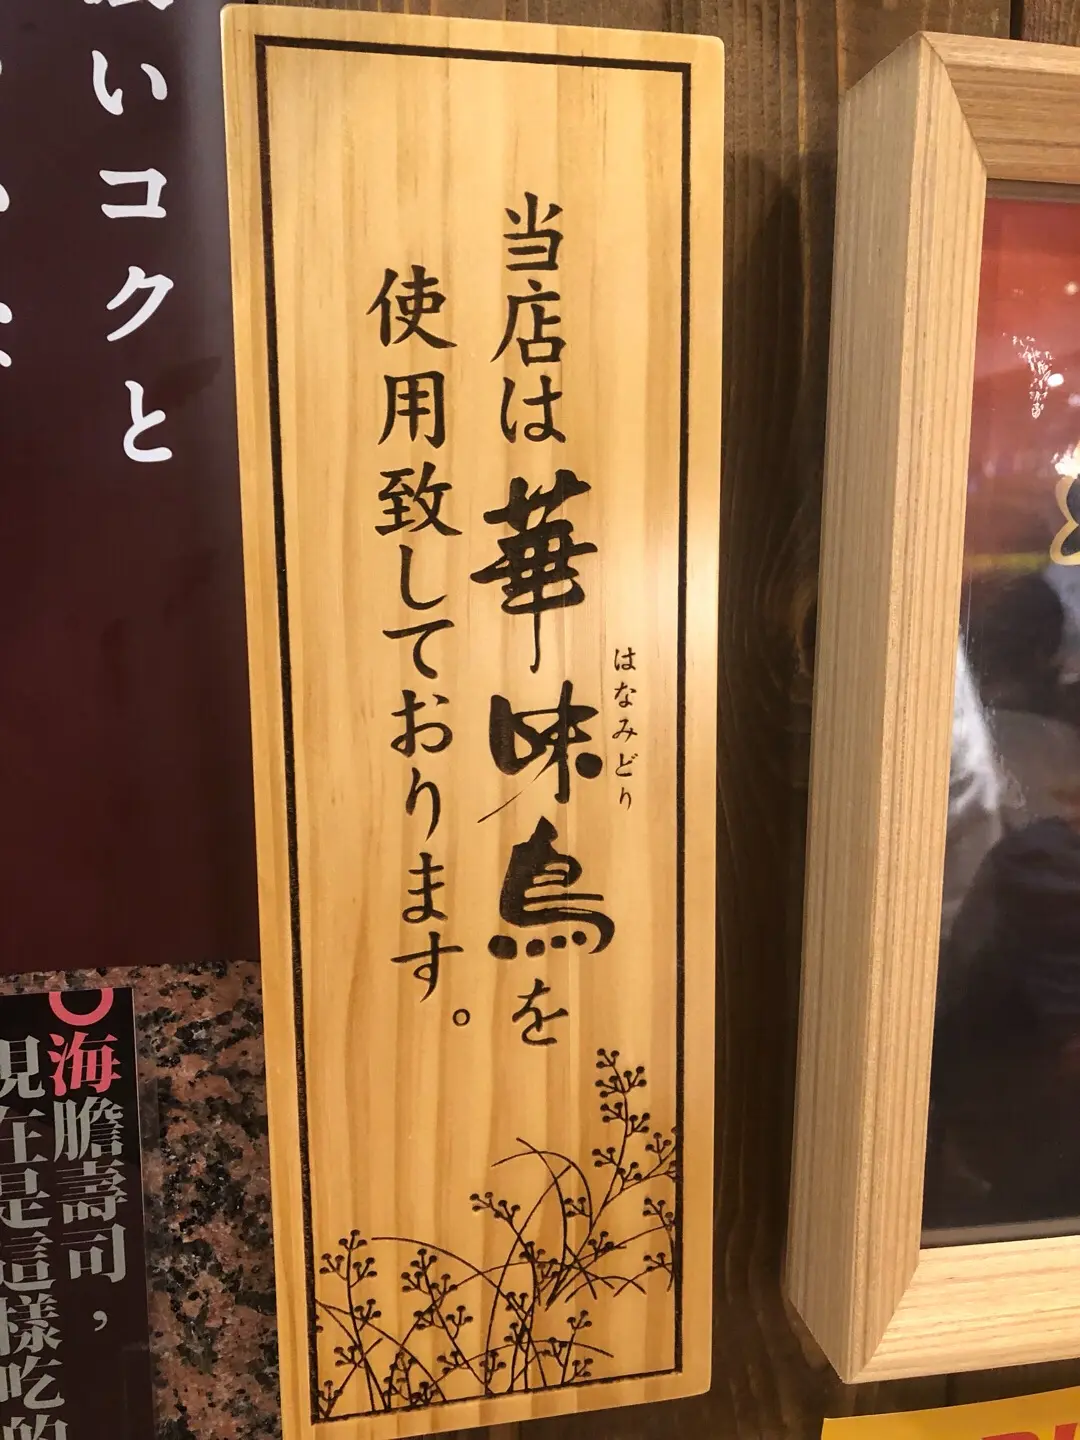 当店は華味鳥を
はなみどり
使用致しております。
いコクと
海膽壽司，
現在是這樣吃的